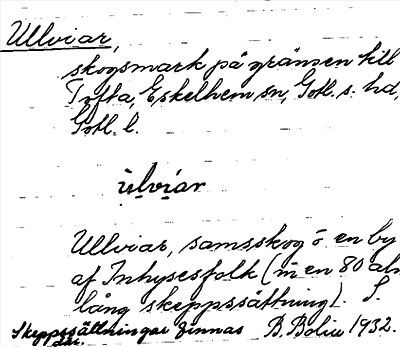 Ullviar,
skogsmark på gränsen till
Tofta, Eskelhem sn, Gotl. s. hd,
Gotl. l.
ulviar
Ullviar, samsskog o en by
af Inhysesfolk (m en 80 aln
lång skeppssättning). S.
Skeppssättningar finnas B. Bolin 1932.
där.